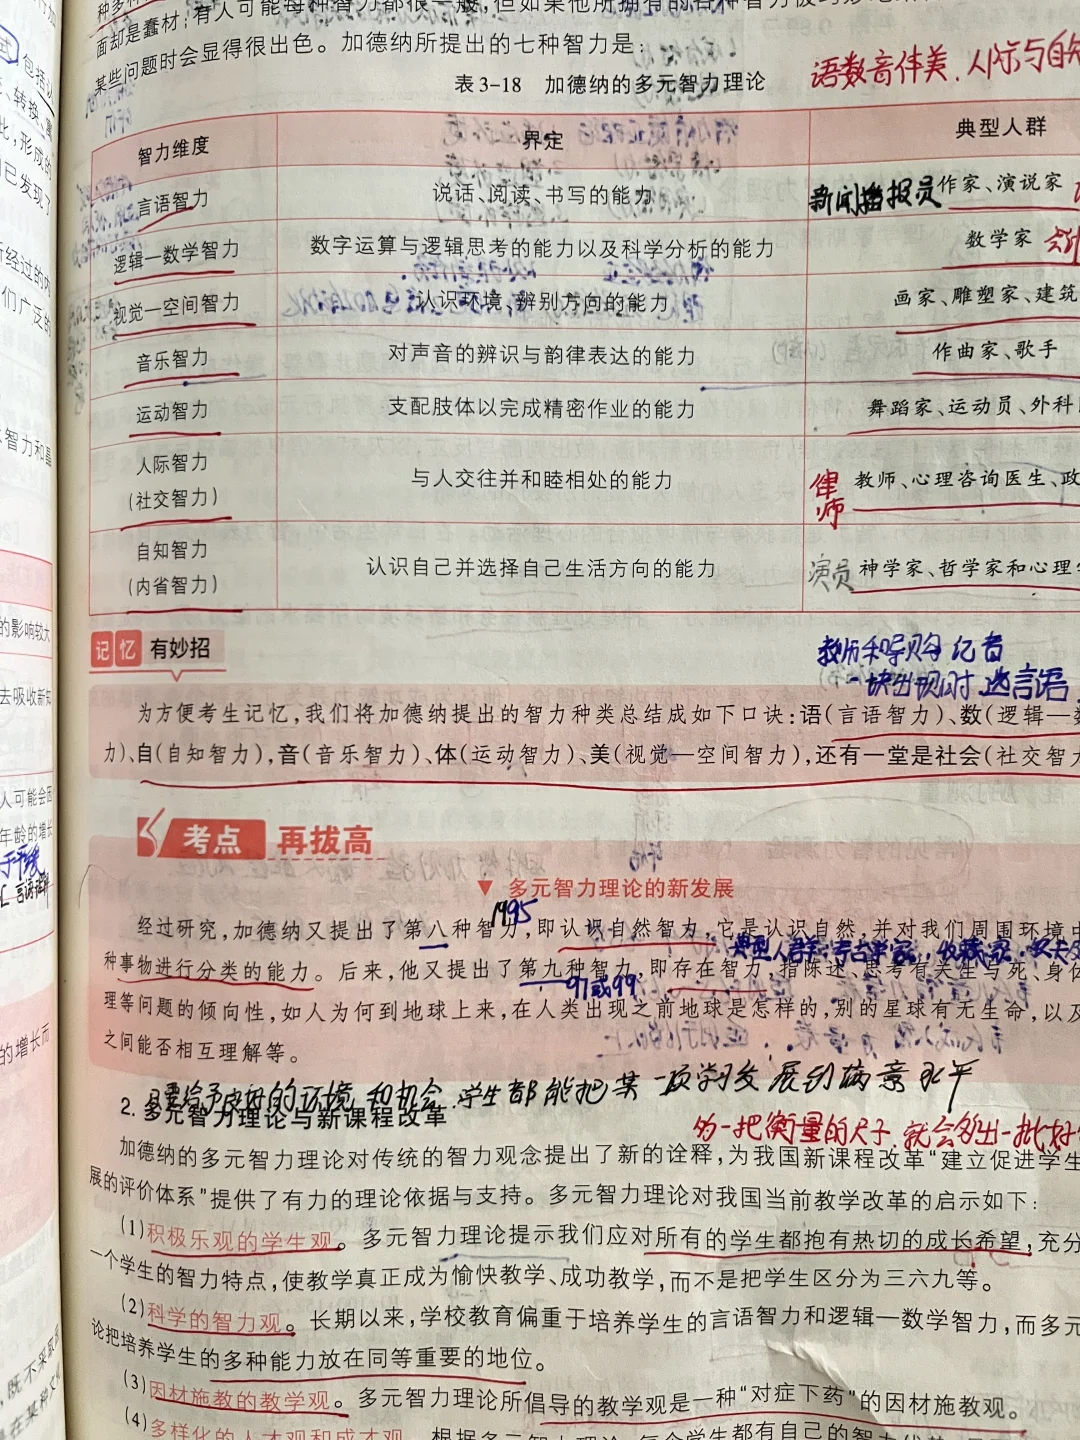 面却是蠢材;有人可能每种智力都很一般,但如果他所拥有的各种智力被
某些问题时会显得很出色。加德纳所提出的七种智力是:
表 3-18 加德纳的多元智力理论
语数音体美.人际与自知
智力维度 界定 典型人群
言语智力 说话、阅读、书写的能力 新闻播报员 作家、演说家
逻辑—数学智力 数字运算与逻辑思考的能力以及科学分析的能力 数学家
视觉—空间智力 认识环境、辨别方向的能力 画家、雕塑家、建筑
音乐智力 对声音的辨识与韵律表达的能力 作曲家、歌手
运动智力 支配肢体以完成精密作业的能力 舞蹈家、运动员、外科
人际智力
(社交智力) 与人交往并和睦相处的能力 律师 教师、心理咨询医生、政
自知智力
(内省智力) 认识自己并选择自己生活方向的能力 演员 神学家、哲学家和心理
记忆 有妙招
教师和导购 记者
一块出现时 选言语
为方便考生记忆,我们将加德纳提出的智力种类总结成如下口诀:语(言语智力)、数(逻辑—数
力)、自(自知智力),音(音乐智力)、体(运动智力)、美(视觉—空间智力),还有一堂是社会(社交智力
考点 再拔高
▼ 多元智力理论的新发展
1995
经过研究,加德纳又提出了第八种智力,即认识自然智力,它是认识自然,并对我们周围环境中
典型人群:考古学家、收藏家、农夫
种事物进行分类的能力。后来,他又提出了第九种智力,即存在智力,指陈述、思考有关生与死、身体
97或99
理等问题的倾向性,如人为何到地球上来,在人类出现之前地球是怎样的,别的星球有无生命,以及
之间能否相互理解等。
只要给予良好的环境和机会.学生都能把某一项学习发展到满意水平
2. 多元智力理论与新课程改革
多一把衡量的尺子.就会多出一批好
加德纳的多元智力理论对传统的智力观念提出了新的诠释,为我国新课程改革“建立促进学生
展的评价体系”提供了有力的理论依据与支持。多元智力理论对我国当前教学改革的启示如下:
(1)积极乐观的学生观。多元智力理论提示我们应对所有的学生都抱有热切的成长希望,充分
一个学生的智力特点,使教学真正成为愉快教学、成功教学,而不是把学生区分为三六九等。
(2)科学的智力观。长期以来,学校教育偏重于培养学生的言语智力和逻辑—数学智力,而多元
论把培养学生的多种能力放在同等重要的地位。
(3)因材施教的教学观。多元智力理论所倡导的教学观是一种“对症下药”的因材施教观。
(4)多样化的人才观和成才观。根据多元智力理论,每个学生都有自己的智力
包括
、转换
此,形成的
已发现了
所经过的内
们广泛的
智力和晶
的影响较大
去吸收新知
人可能会因
年龄的增长
的增长而
,既不采取